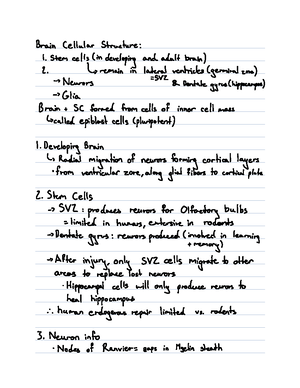 Brain Cellular Structure:
1. Stem cells (in developing and adult brain)
2. ↳ remain in lateral ventricles (germinal zone)
→ Neurons =SVZ & Dentate gyrus (hippocampus)
→ Glia
Brain + SC formed from cells of inner cell mass
↳ called epiblast cells (pluripotent)
1. Developing Brain
↳ Radial migration of neurons forming cortical layers
· from ventricular zone, along glial fibers to cortical plate
2. Stem Cells
→ SVZ: produces neurons for Olfactory bulbs
= limited in humans, extensive in rodents
→ Dentate gyrus: neurons produced (involved in learning
+ memory)
→ After injury, only SVZ cells migrate to other
areas to replace lost neurons
· Hippocampal cells will only produce neurons to
heal hippocampus
∴ human endogenous repair limited vs. rodents
3. Neuron info
· Nodes of Ranvier = gaps in Myelin sheath